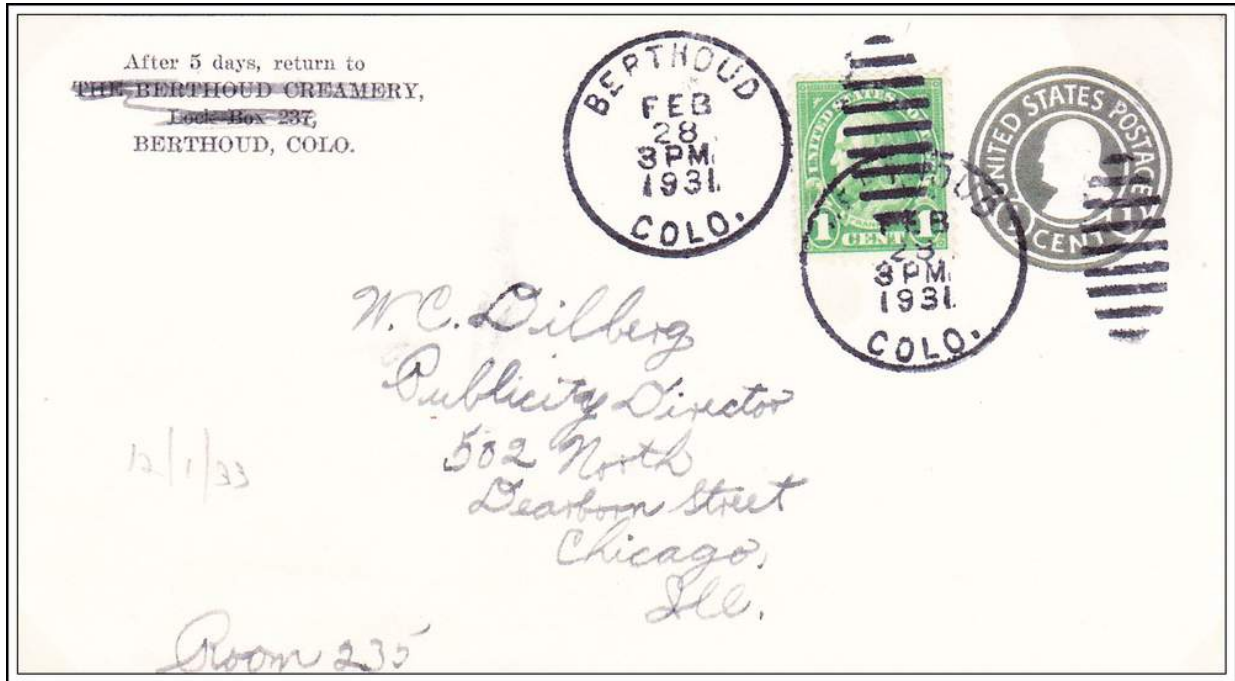 After 5 days, return to
THE BERTHOUD CREAMERY,
Lock Box 237,
BERTHOUD, COLO.
BERTHOUD
FEB
28
3 PM
1931
COLO.
UNITED STATES POSTAGE
1 CENT 1
UNITED STATES POSTAGE
1 CENT 1
FEB
28
3 PM
1931
COLO.
W. C. Dilberg
Publicity Director
502 North
Dearborn Street
Chicago,
Ill.
12/1/33
Room 235